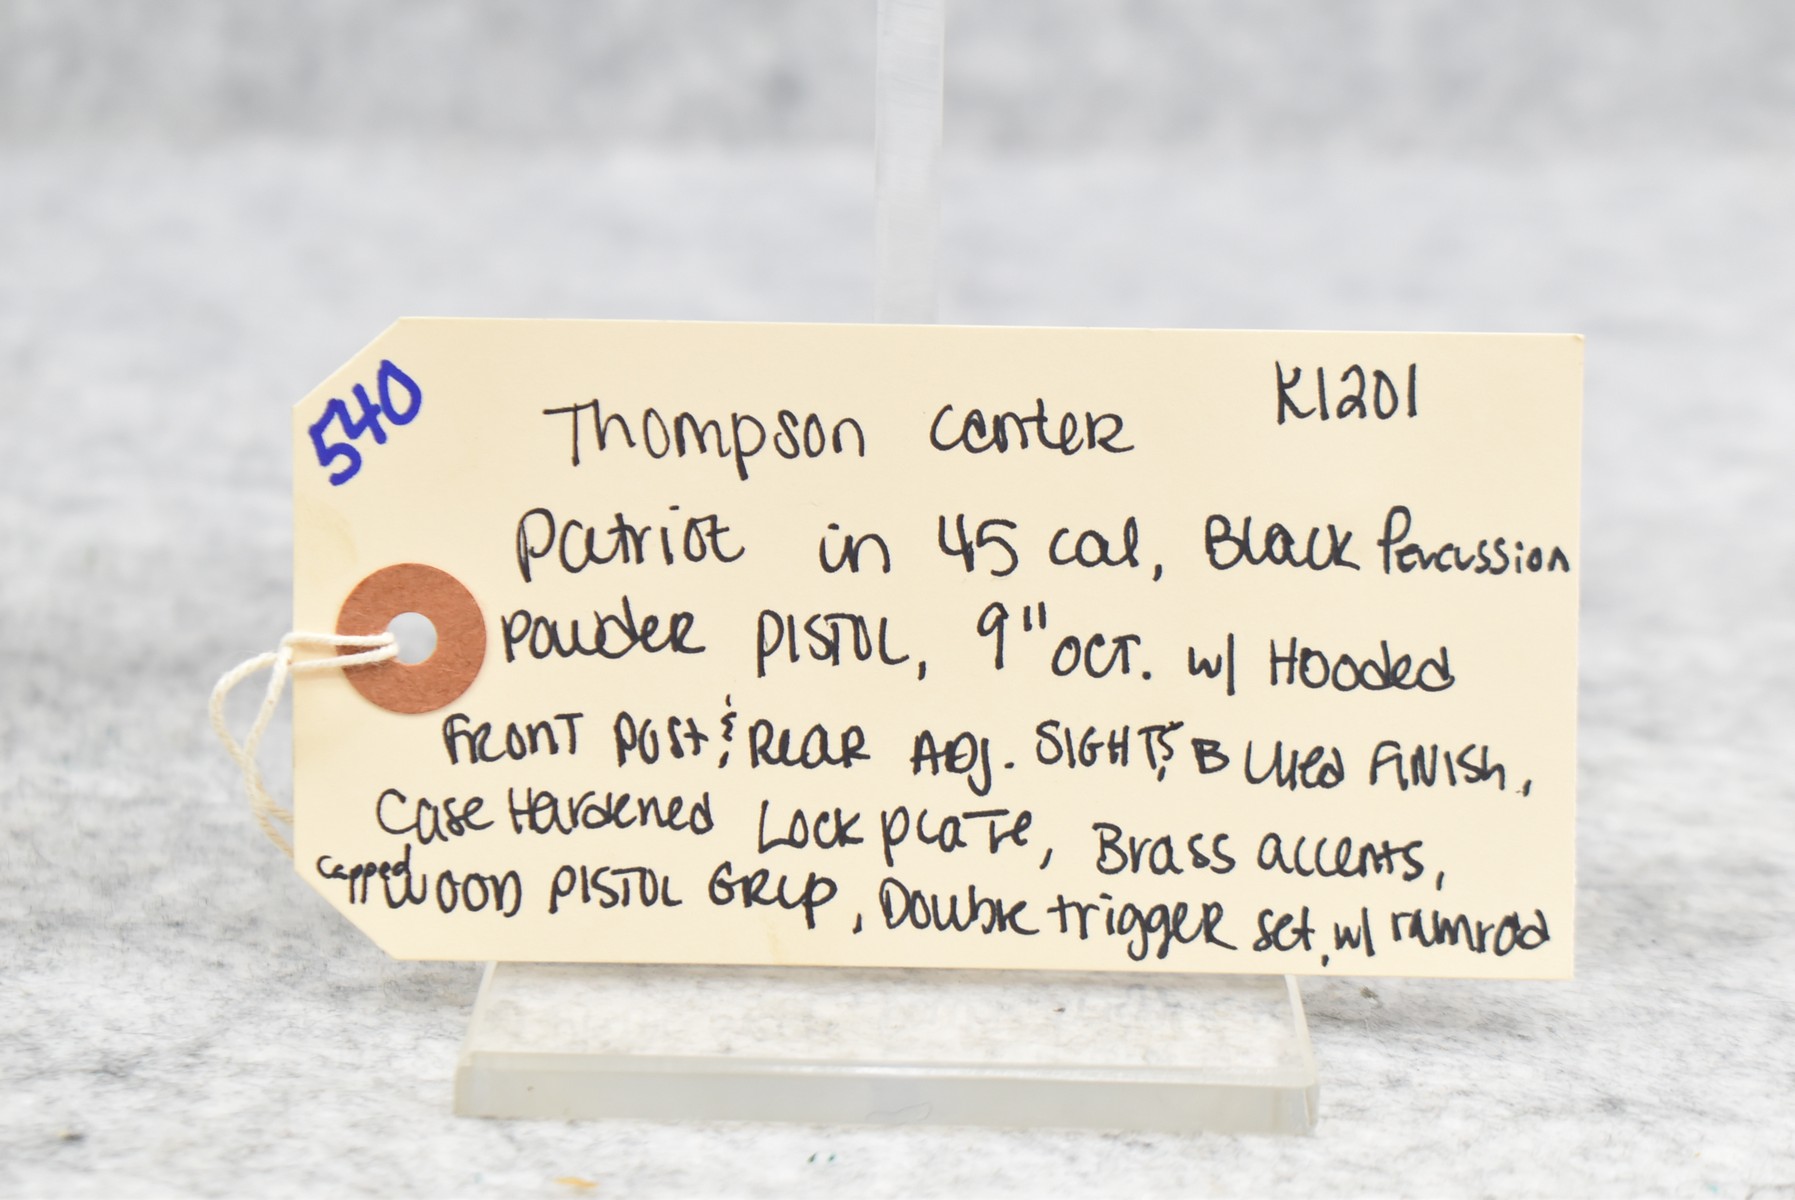 540
K1201
Thompson Center
Patriot in 45 cal, Black Percussion
Powder PISTOL, 9" OCT. w/ Hooded
Front Post & Rear Adj. SIGHTS, Blued FINISH,
Case Hardened Lock plate, Brass accents,
Capped Wood PISTOL GRIP, Double trigger set, w/ ramrod